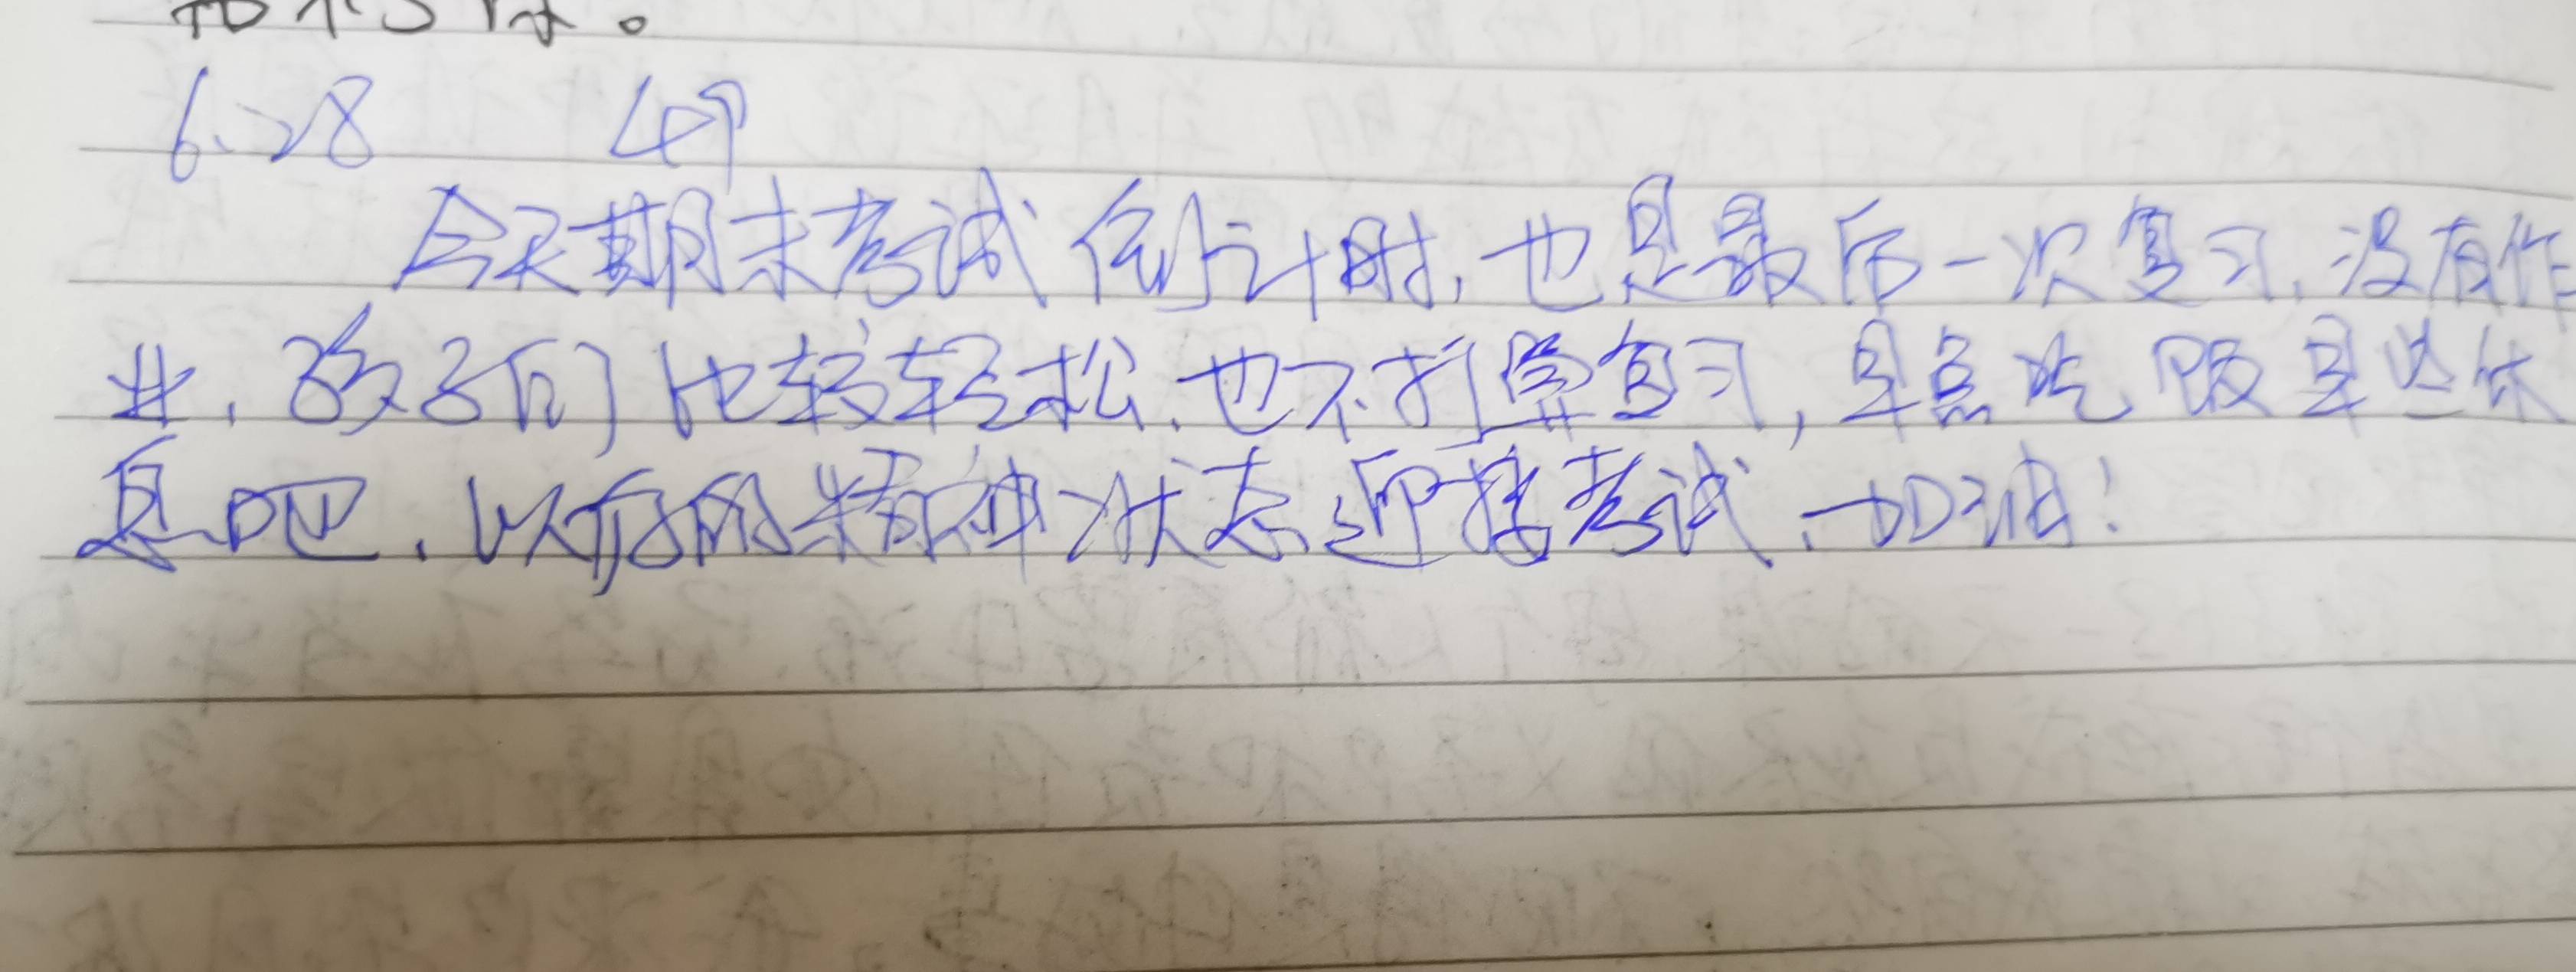 6.28
今天期末考试倒计时,也是最后一次复习,没有作
业,孩子们比较轻松,也不打算复习,早点吃饭早些休
息吧,以有的精神状态迎接考试,加油!